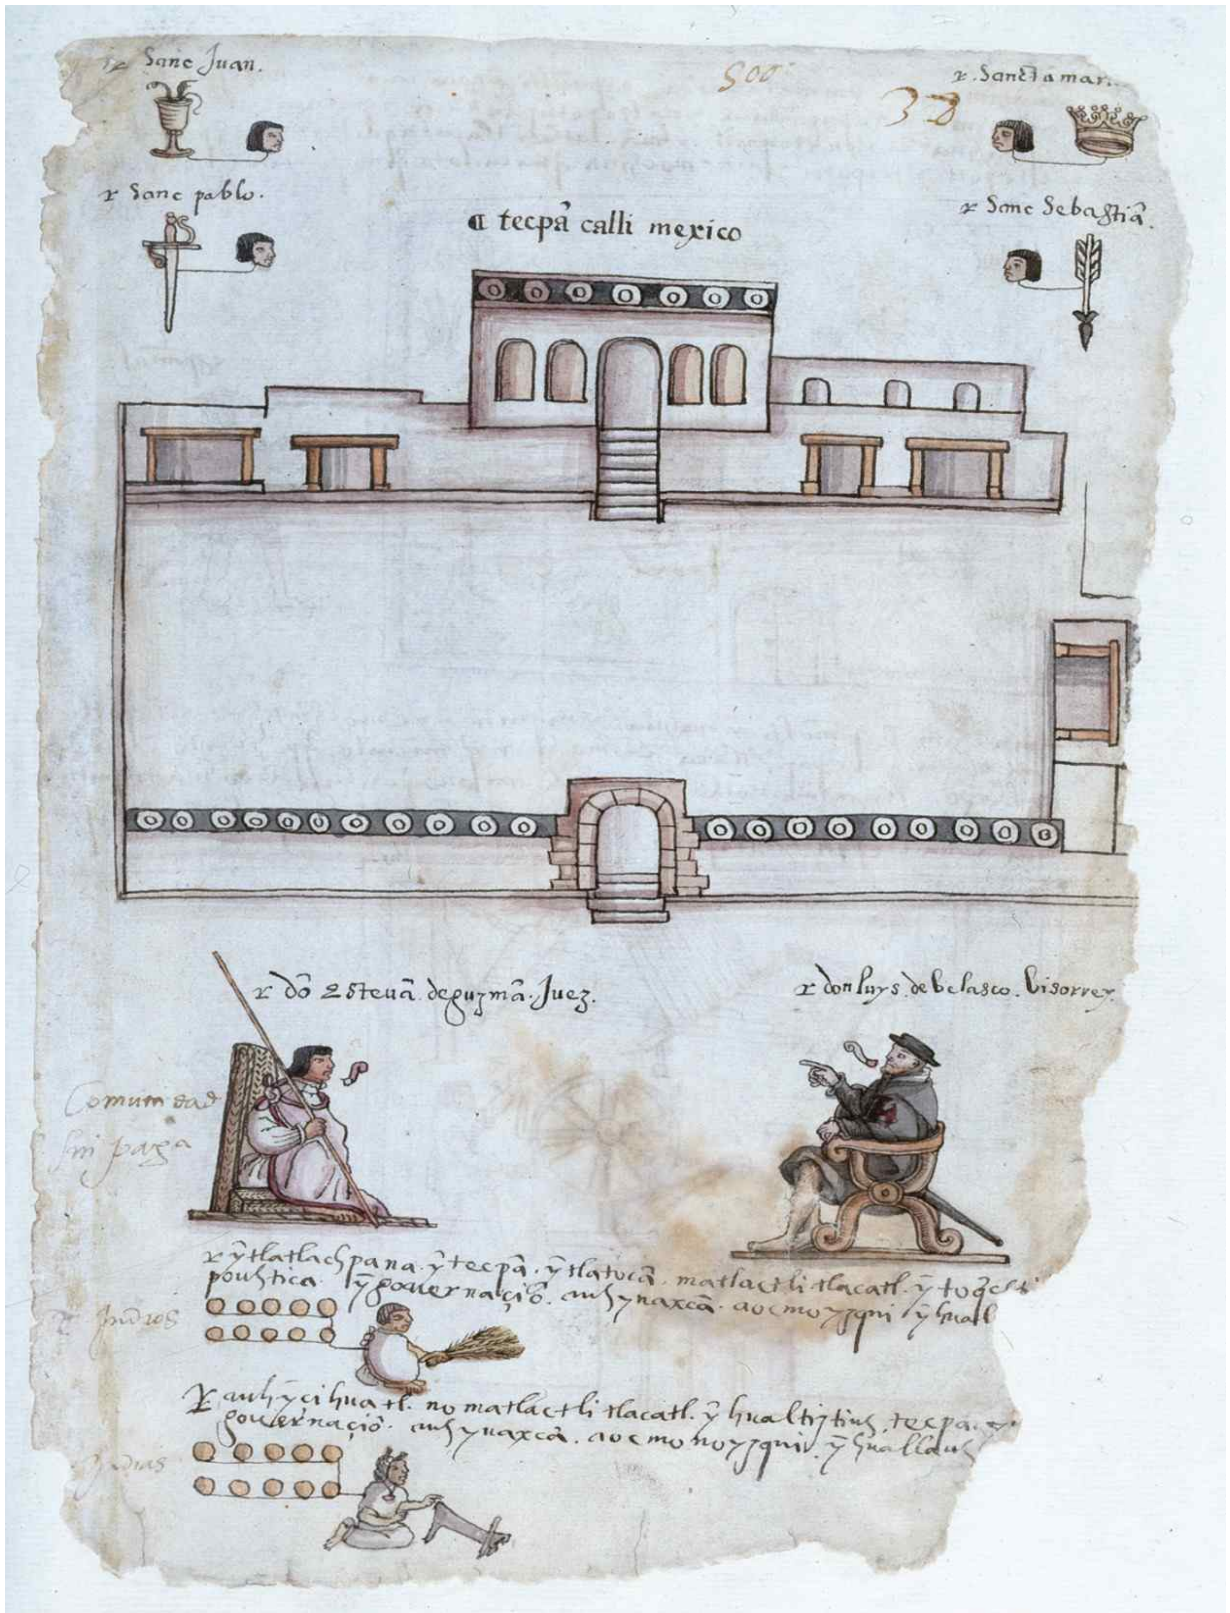 r Sanc Juan.
500
r. Sancta mar..
38
r Sanc pablo.
r Sanc Sebastiā.
¶ tecpā calli mexico
r dō Esteuā. deguzmā. Juez.
r don luys. de velasco. visorrey
Comunidad
sin paga
r ỹtlatlachpana. ỹ tecpā. ỹtlatocā. matlactli tlacatl. ỹ toq̄chti
pouhtica. ỹ gouernaçiō. auh ynaxcā. aocmo yzqui ỹ huall
Indios
r auh ỹ cihuatl. no matlactli tlacatl. ỹ hualtiztiuh tecpā.
gouernaçiō. auh ynaxcā. aocmo no yzqui. ỹ huallauh
Indias